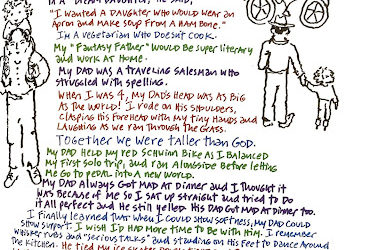 In a "Dream Daughter," he said,
"I wanted a daughter who would wear an
apron and make soup from a ham bone."
I'm a vegetarian who doesn't cook.
My "Fantasy Father" would be super literary
and work at home.
My dad was a traveling salesman who
struggled with spelling.
When I was 4, my dad's head was as big
as the world! I rode on his shoulders,
clasping his forehead with my tiny hands and
laughing as we ran through the grass.
Together we were taller than God.
My dad held my red Schwinn bike as I balanced
my first solo trip, and ran alongside before letting
me go to pedal into a new world.
My dad always got mad at dinner and I thought it
was because of me so I sat up straight and tried to do
it all perfect and he still yelled. His dad got mad at dinner too.
I finally learned that when I could show softness, my dad could
show support. I wish I'd had more time to be with him. I remember
whisker rubs and "serious talks" and standing on his feet to dance around
the kitchen. He tied my ice skates